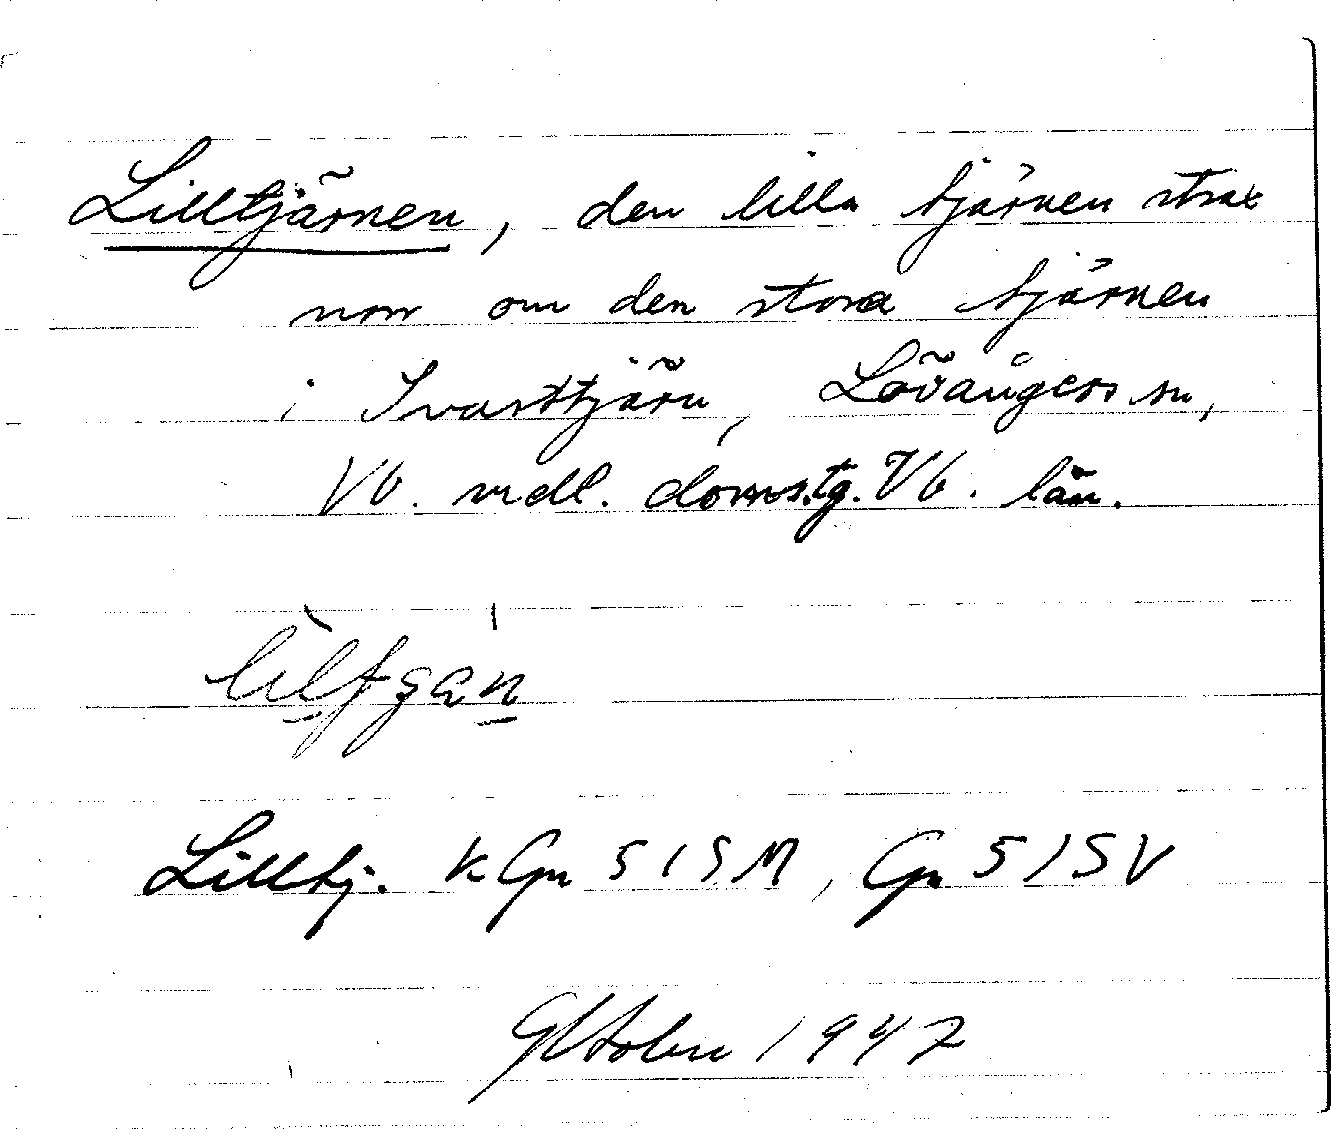 Lilltjärnen, den lilla tjärnen strax
norr om den stora tjärnen
i Svarttjärn, Lövångers sn,
Vb. ndl. doms.tg. Vb. län.
Lilltj. k Gn 515M, Gn 515V
1947